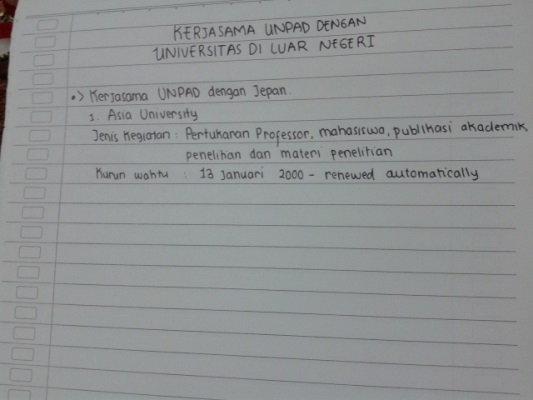 KERJASAMA UNPAD DENGAN
UNIVERSITAS DI LUAR NEGERI
•> Kerjasama UNPAD dengan Jepan.
1. Asia University
Jenis Kegiatan : Pertukaran Professor, mahasiswa, publikasi akademik
penelitian dan materi penelitian
Kurun waktu : 13 Januari 2000 - renewed automatically